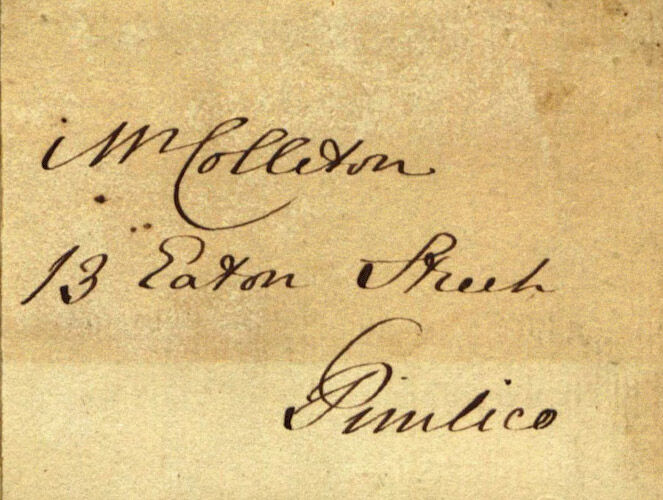 Mr Colleton
13 Eaton Street
Pimlico